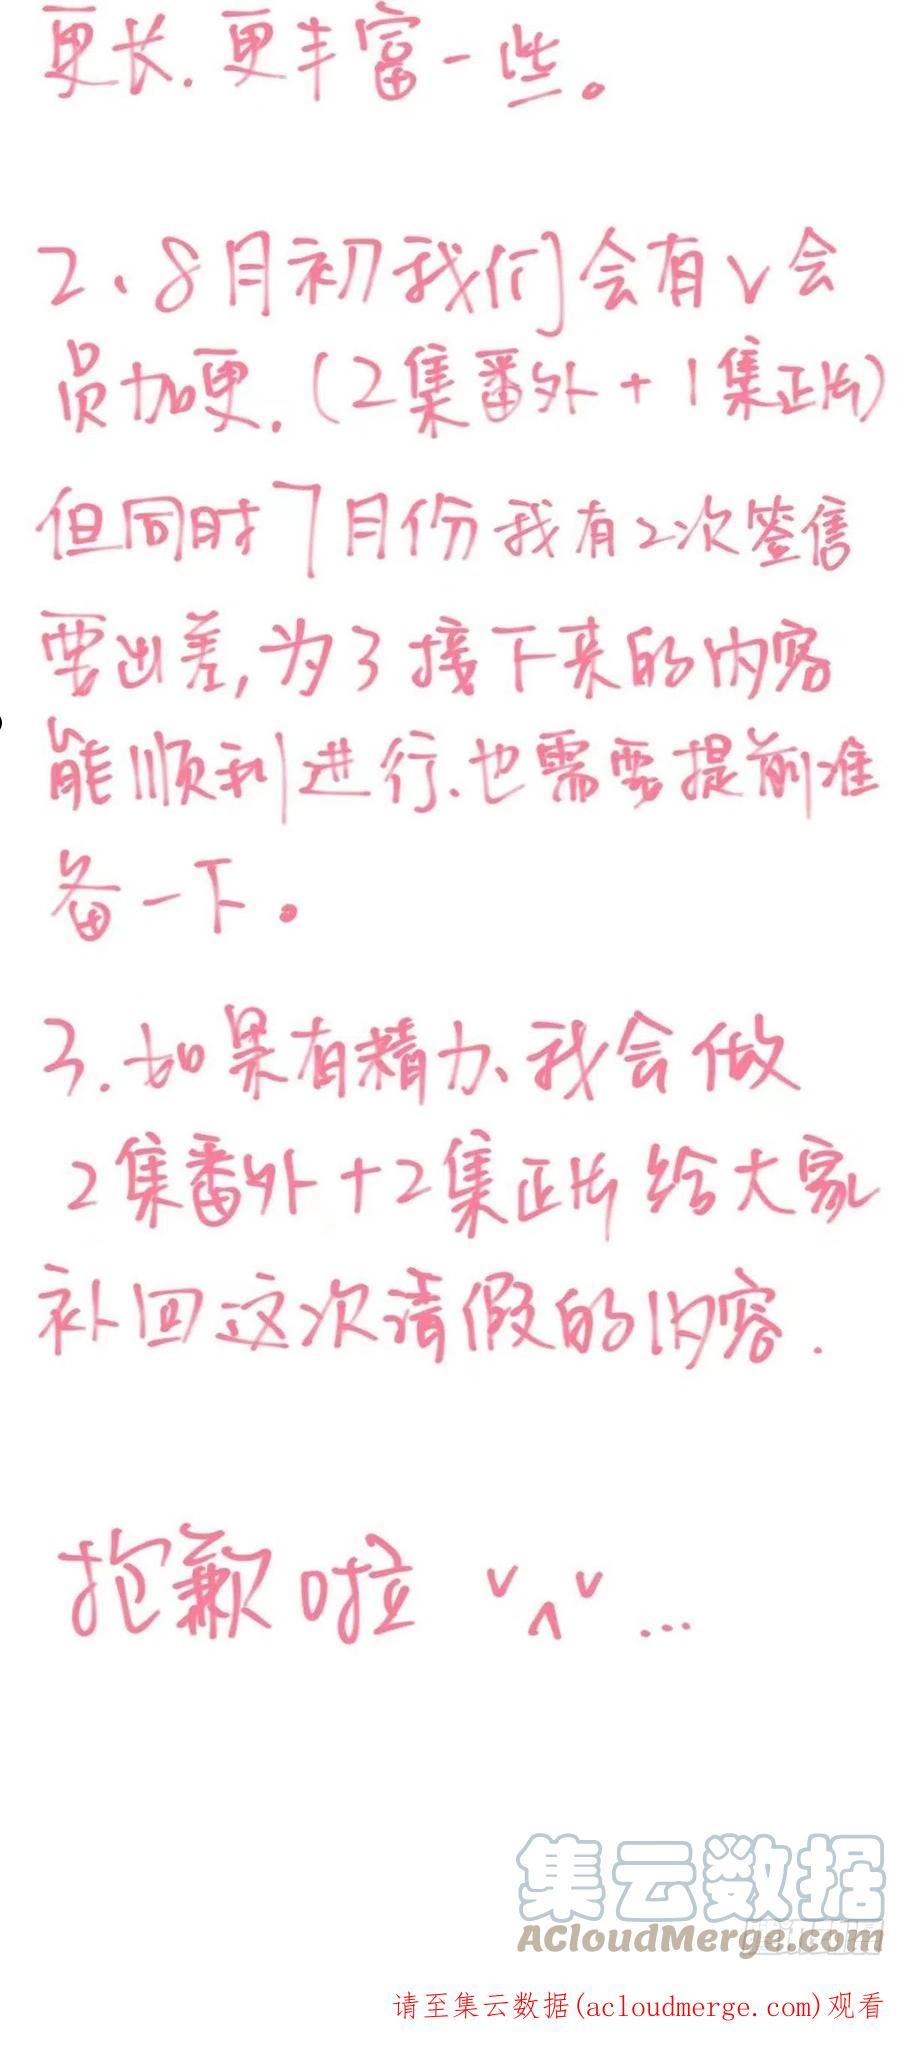 更长.更丰富一些。
2、8月初我们会有v会
员加更.(2集番外+1集正片)
但同时7月份我有2次签售
要出差,为了接下来的内容
能顺利进行.也需要提前准
备一下。
3.如果有精力、我会做
2集番外+2集正片给大家
补回这次请假的内容.
抱歉啦 ˅ʌ˅...
集云数据
ACloudMerge.com
请至集云数据(acloudmerge.com)观看